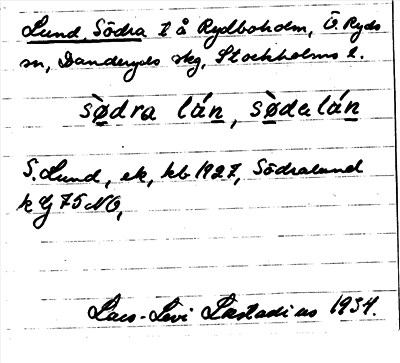 Lund, Södra l å Rydboholm, Ö. Ryds
sn, Danderyds skg, Stockholms l.
sø̀dra lán, sø̀dəlán
S. Lund, ek, kb 1927, Södralund
k Gj 75 NO,
Lars-Levi Læstadius 1934.